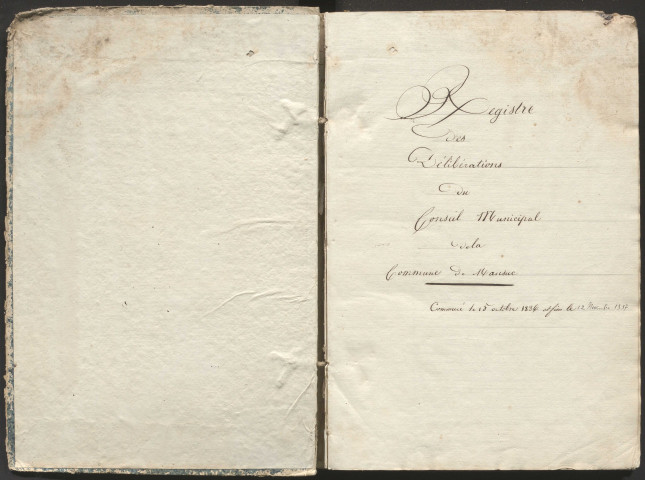 Registre
des
Délibérations
du
Conseil Municipal
de la
Commune de Mansac
Commencé le 15 octobre 1834 et fini le 12